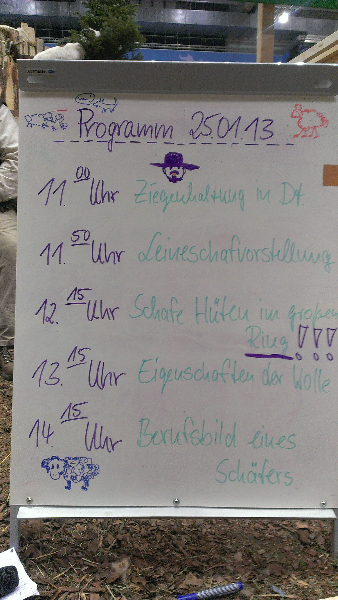 Programm 25.01.13
11.00 Uhr Ziegenhaltung in Dt
11.50 Uhr Leineschafvorstellung
12.15 Uhr Schafe Hüten im großen
Ring !!!
13.15 Uhr Eigenschaften der Wolle
14.15 Uhr Berufsbild eines
Schäfers